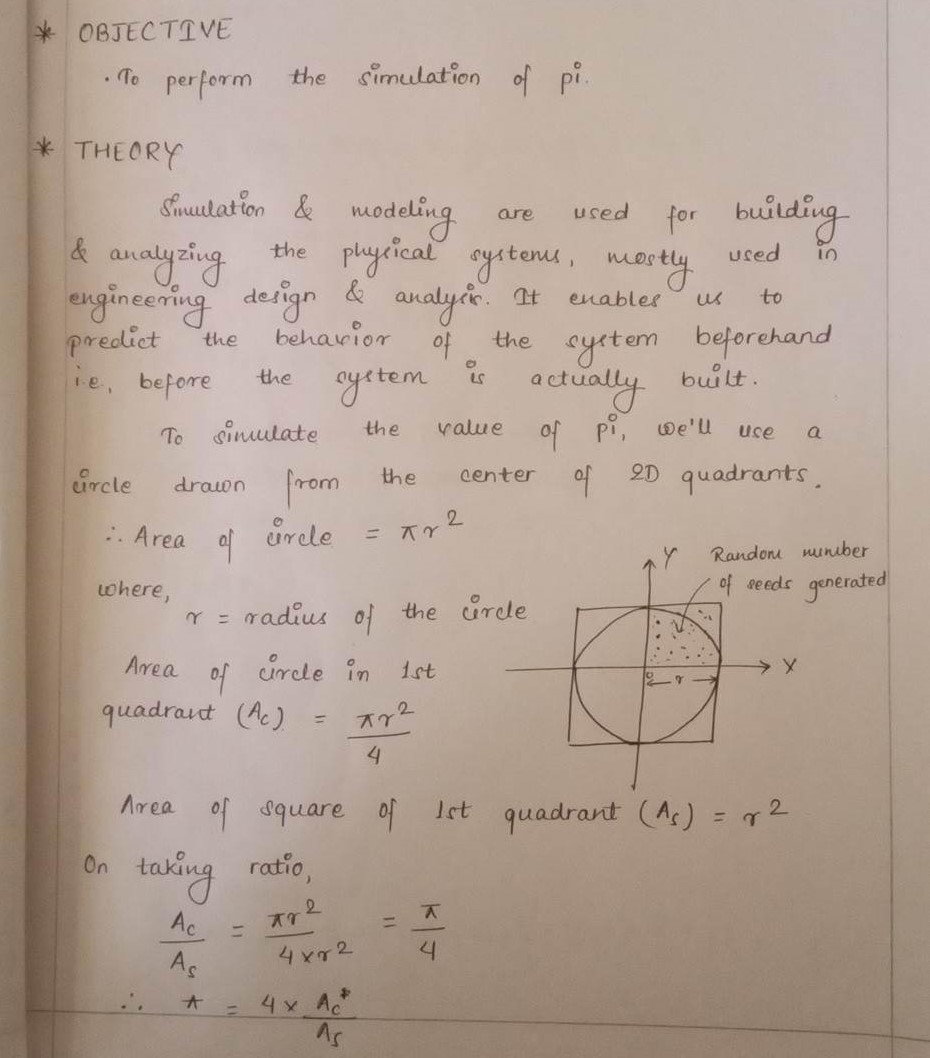 * OBJECTIVE
· To perform the simulation of pi.
* THEORY
Simulation & modeling are used for building
& analyzing the physical systems, mostly used in
engineering design & analysis. It enables us to
predict the behavior of the system beforehand
i.e, before the system is actually built.
To simulate the value of pi, we'll use a
circle drawn from the center of 2D quadrants.
∴ Area of circle = πr²
where,
r = radius of the circle
Area of circle in 1st
quadrant (Ac) = πr²/4
Y Random number
of seeds generated
X
o r
Area of square of 1st quadrant (As) = r²
On taking ratio,
Ac/As = πr²/4×r² = π/4
∴ π = 4 × Ac*/As